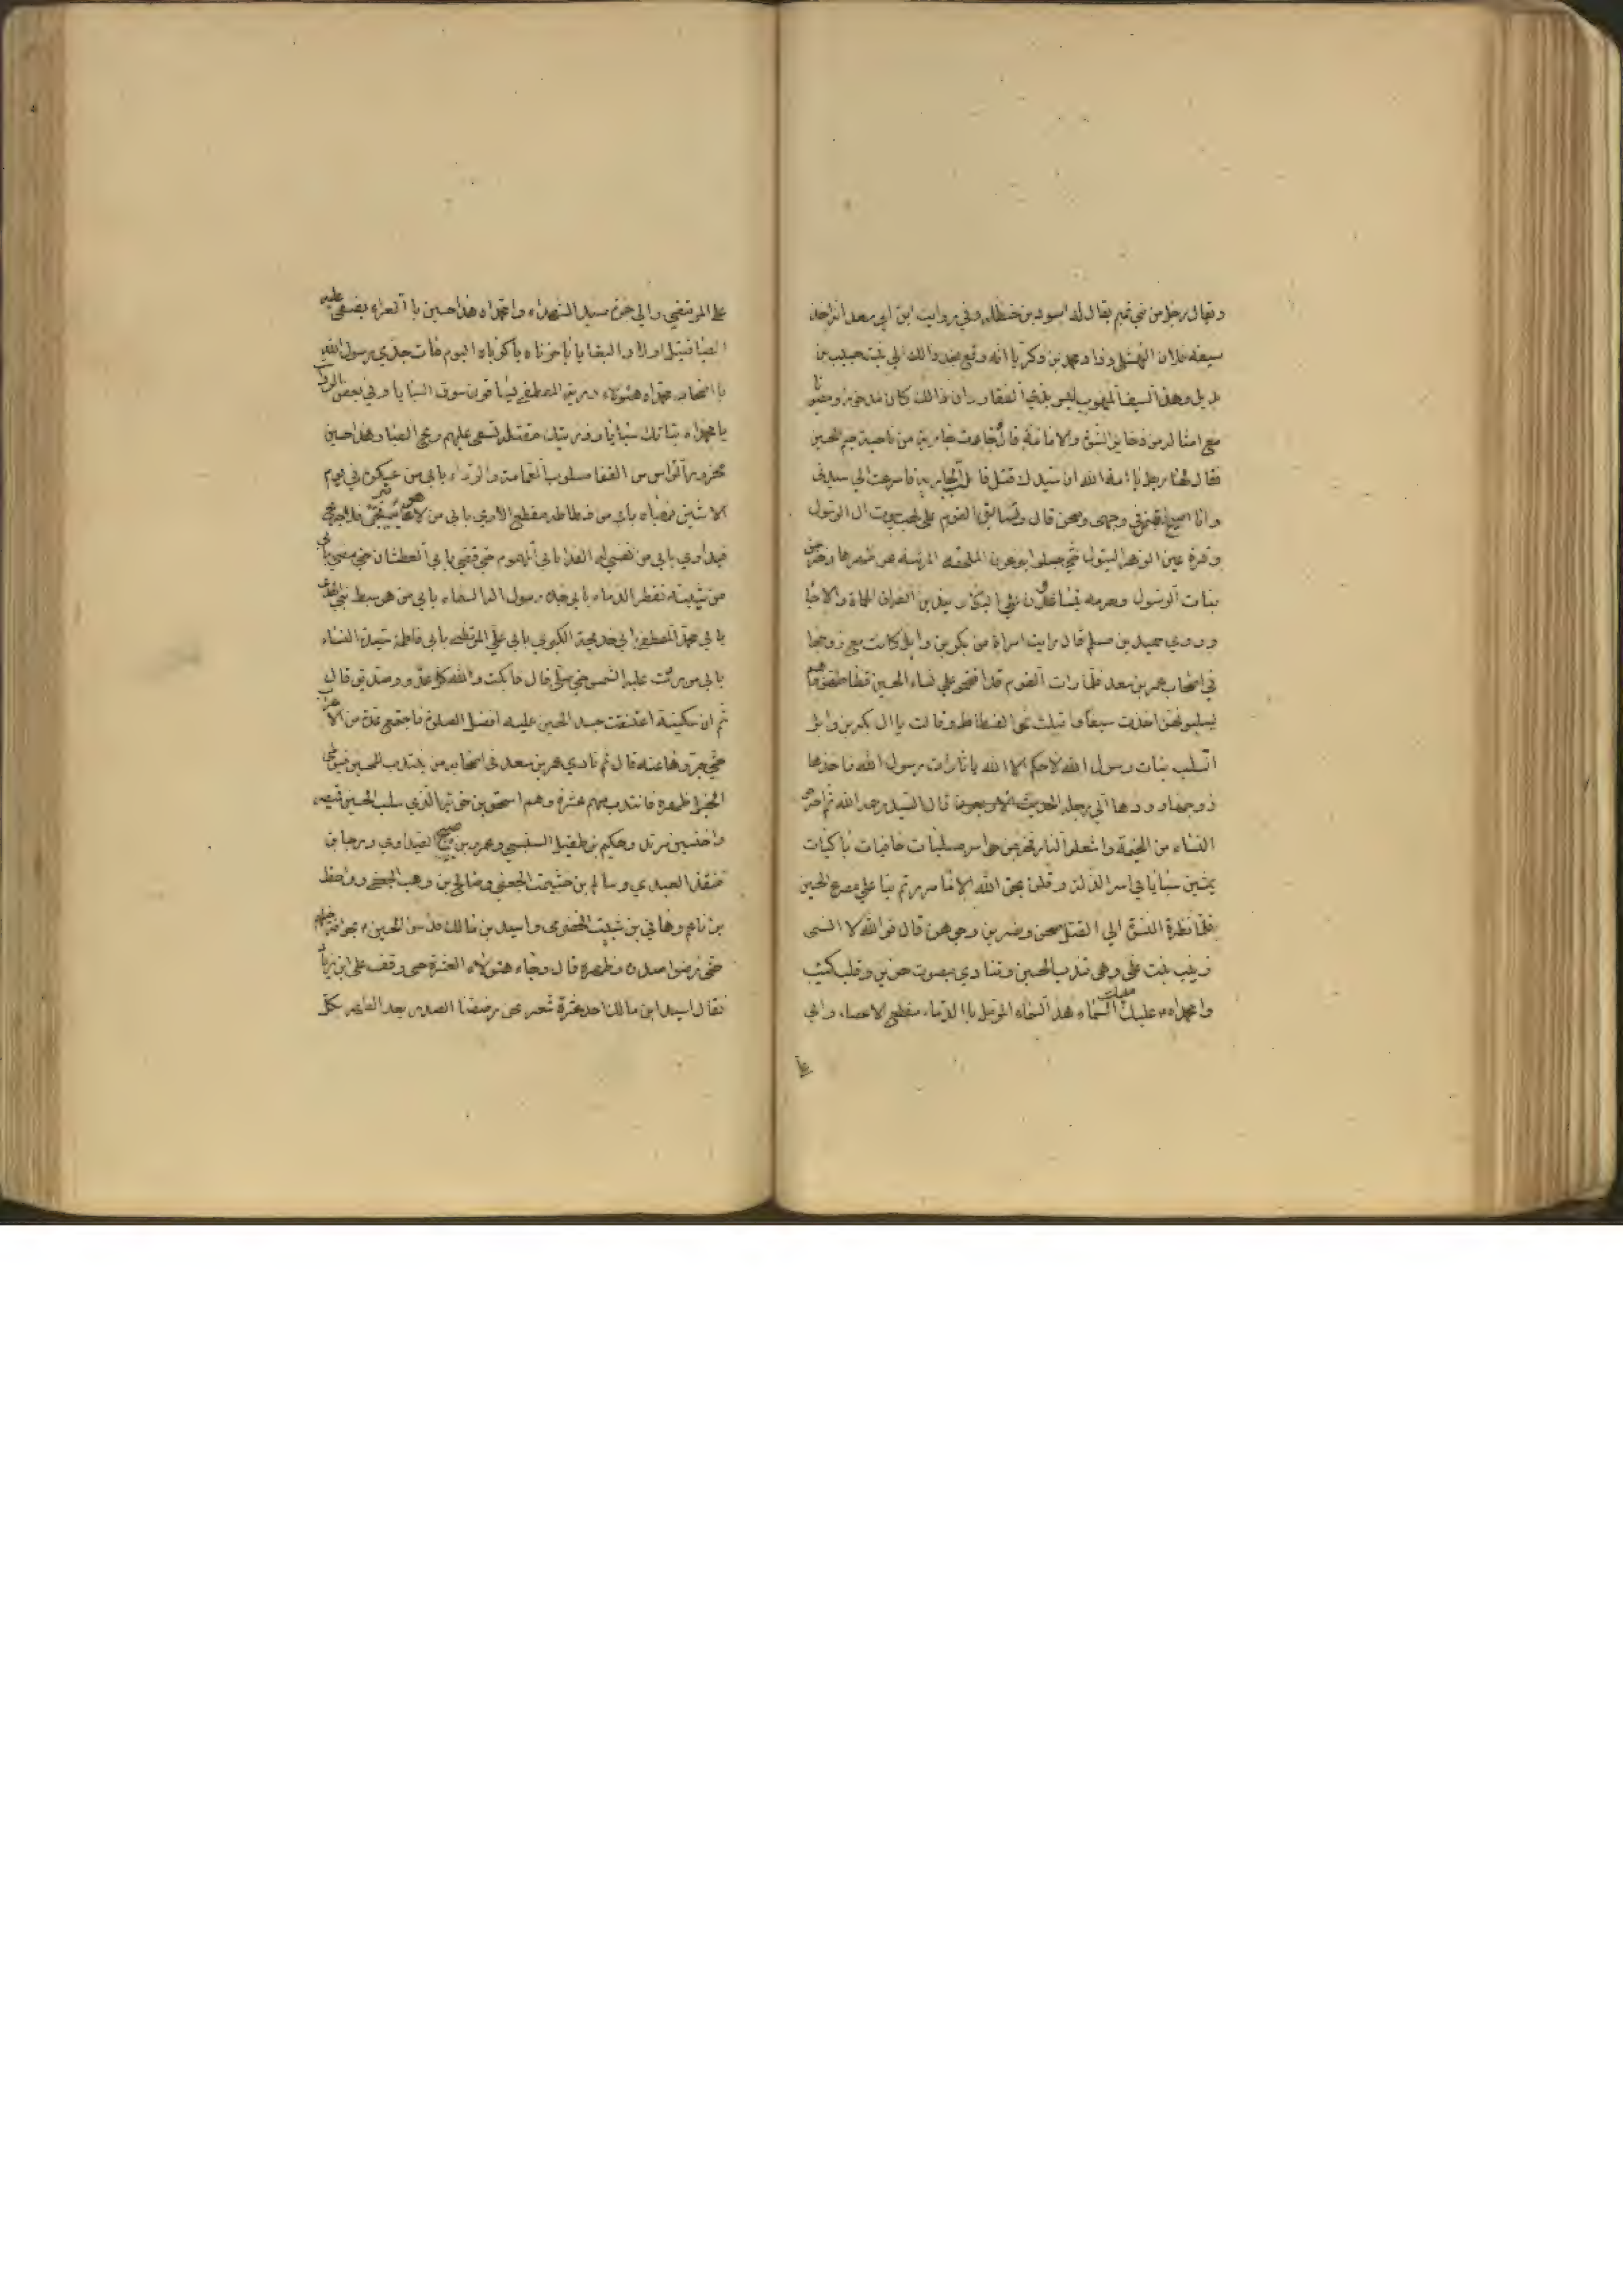 ويقال رجل من بني تميم يقال له اسود بن حنظله وفي روايت ابن ابي سعد انه اخذ
سيفه فلان النهشلي وزاد محمد بن زكريا انه وقع بعد ذالك الي بنت حبيب بن
بديل وهذا السيف المنهوب ليس بذي الفقار وان ذالك كان مذخورا ومصونا
مع امثاله من ذخاير النبوة والامامة قال وجاءت جارية من ناحية خيم الحسين
فقال لها رجل يا امة الله ان سيدك قتل قالت الجارية فاسرعت الي سيدتي
وانا اصيح فقمن في وجهي وصحن قال وتسابق القوم علي نهب بيوت ال الرسول
وقرة عين الزهرا البتول حتي جعلوا ينزعون الملحفه المرئة عن ظهرها وخرجن
بنات الرسول وحرمه يتساعدن علي البكاء ويندبن لفراق الحماة والاحبا
وروي حميد بن مسلم قال رايت امراة من بكر بن وايل كانت مع زوجها
في اصحاب عمر بن سعد فلما رات القوم قد اقتحموا علي نساء الحسين فسطاطهن وهم
يسلبونهن اخذت سيفا واقبلت نحو الفسطاط وقالت يا ال بكر بن وايل
اتسلب بنات رسول الله لا حكم الا الله يا ثارات رسول الله فاخذها
زوجها وردها الي رحله قال السيد رحمه الله ثم اخرجوا
النساء من الخيمة واشعلوا النار فخرجن حواسر مسلبات حافيات باكيات
يمشين سبايا في اسر الذلة وقلن بحق الله الا ما مررتم بنا علي مصرع الحسين
فلما نظرة النسوة الي القتلي صحن وضربن وجوههن قال فوالله لا انسي
زينب بنت علي وهي تندب الحسين وتنادي بصوت حزين وقلب كئيب
وا محمداه عليك السماء هذا الحسين المرمل بالدماء مقطع الاعضاء والي
علي
علي المرتضي والي حمزة سيد الشهداء وا محمداه هذا حسين بالعراء يصفي عليه
الصبا قتيل اولاد البغايا يا حزناه يا كرباه اليوم مات جدي رسول الله
يا اصحاب محمداه هؤلاء ذرية المصطفي يساقون سوق السبايا وفي بعض الروايات
يا محمداه بناتك سبايا وذريتك مقتله تسفي عليهم ريح الصبا وهذا حسين
محزوز الراس من القفا مسلوب العمامة والرداء بابي من عسكره في يوم
الاثنين نهبا بابي من فسطاطه مقطع الاوي بابي من لا هو غايب فيرتجي ولا جريح
فيداوي بابي من نفسي له الفدا بابي المهموم حتي قضي بابي العطشان حتي مضي بابي
من شيبته تقطر الدماء بابي جده رسول اله السماء بابي من هو سبط نبي الهدي
بابي محمد المصطفي بابي خديجة الكبري بابي علي المرتضي بابي فاطمة سيدة النساء
بابي من ردت عليه الشمس حتي صلي قال فابكت والله كل عدو وصديق قال
ثم ان سكينة اعتنقت جسد الحسين عليه افضل الصلوة فاجتمع عدة من الاعراب
حتي جروها عنه قال ثم نادي عمر بن سعد في اصحابه من ينتدب للحسين فيوطي
الخيل ظهره فانتدب منهم عشرة وهم اسحق بن حوية الذي سلب الحسين قميصه
واخنس بن مرثد وحكيم بن طفيل السنبسي وعمرو بن صبيح الصيداوي ورجا بن
منقذ العبدي وسالم بن خثيمة الجعفي وصالح بن وهب الجعفي وواحظ
بن ناعم وهاني بن شبيت الحضرمي واسيد بن مالك فداسوا الحسين بحوافر خيلهم
حتي رضوا صدره وظهره قال وجاء هؤلاء العشرة حتي وقف علي ابن زياد
فقال اسيد ابن مالك احد عشرة شعر نحن رضضنا الصدر بعد الظهر بكل